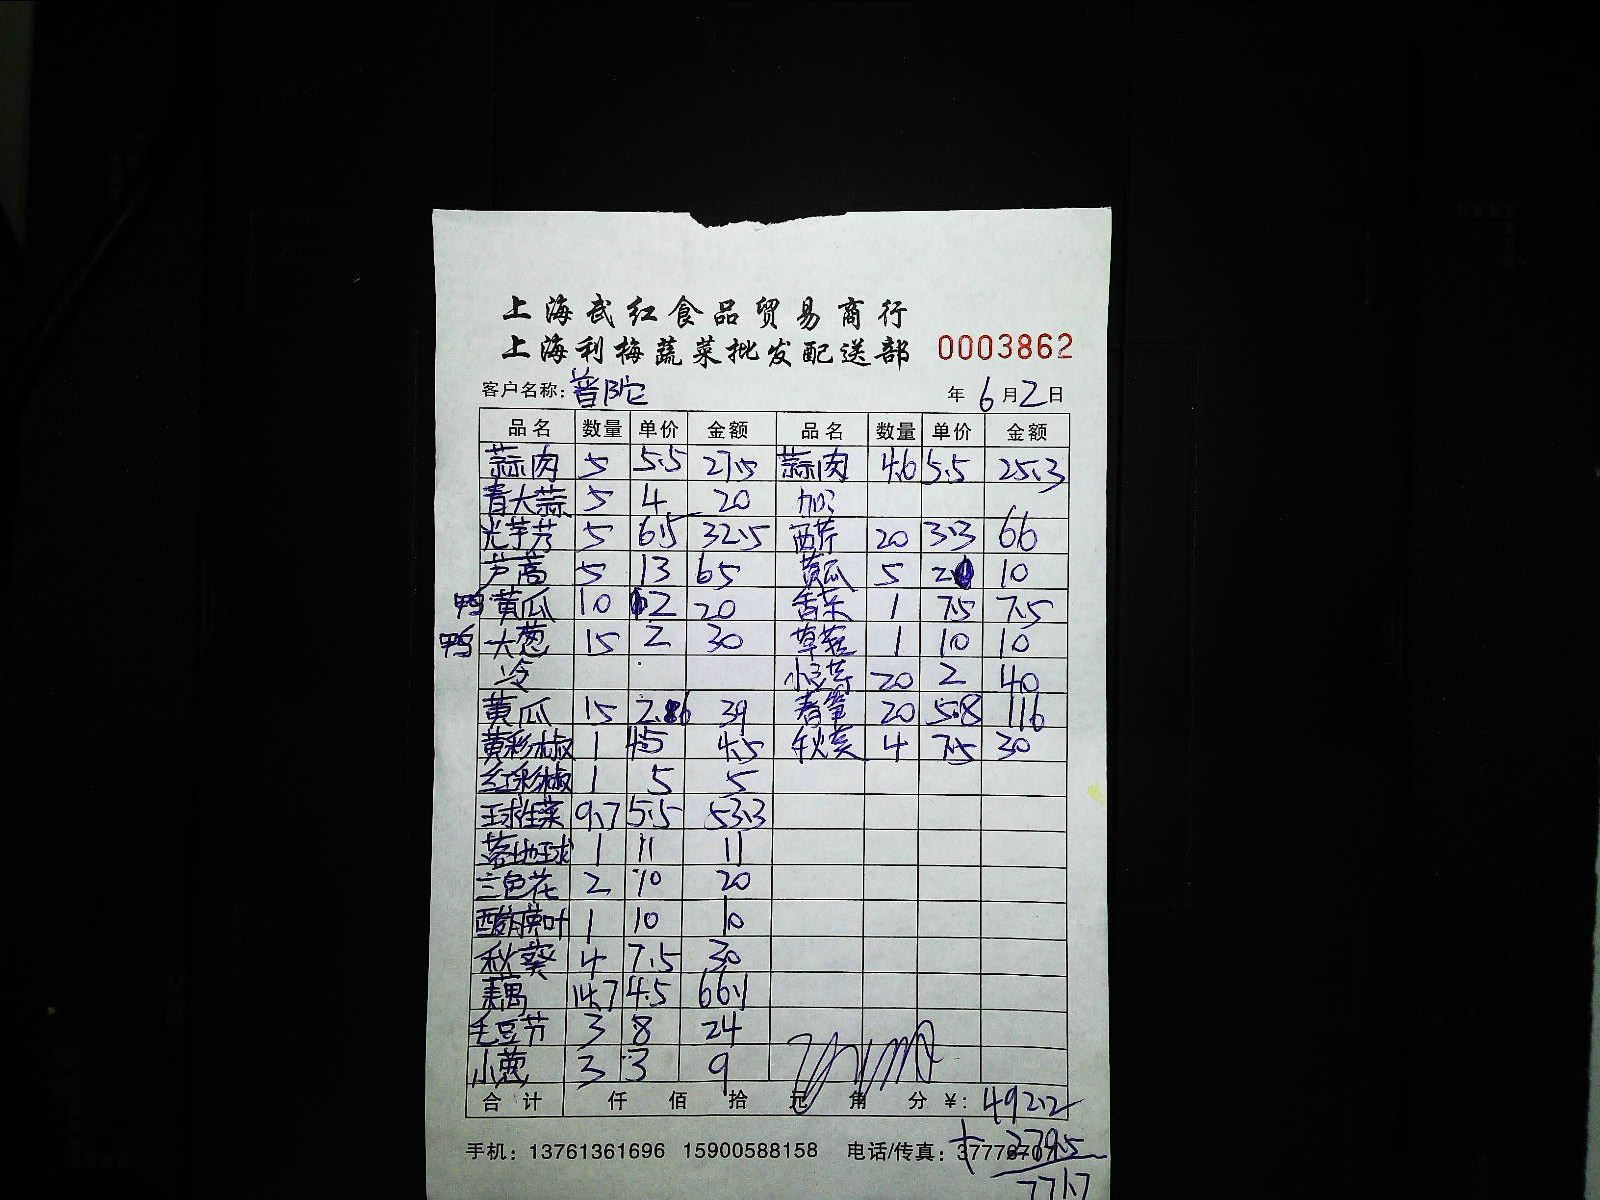 上海武红食品贸易商行
上海利梅蔬菜批发配送部 0003862
客户名称：普陀 年 6月2日
品名 数量 单价 金额 品名 数量 单价 金额
蒜肉 5 5.5 27.5 蒜肉 4.6 5.5 25.3
青大蒜 5 4 20 加
光芋艿 5 6.5 32.5 西芹 20 3.3 66
芦蒿 5 13 65 黄瓜 5 2 10
鸭 黄瓜 10 2 20 香菜 1 7.5 7.5
鸭 大葱 15 2 30 草菇 1 10 10
冷 20 2 40
黄瓜 15 2.6 39 春笋 20 5.8 116
黄彩椒 1 4.5 4.5 秋葵 4 7.5 30
红彩椒 1 5 5
球生菜 9.7 5.5 53.3
落地球 1 11 11
三色花 2 10 20
酸模叶 1 10 10
秋葵 4 7.5 30
藕 14.7 4.5 66.1
毛豆节 3 8 24
小葱 3 3 9
合计 仟 佰 拾 元 角 分 ￥: 492.2
手机：13761361696 15900588158 电话/传真：3777670
+ 279.5
771.7